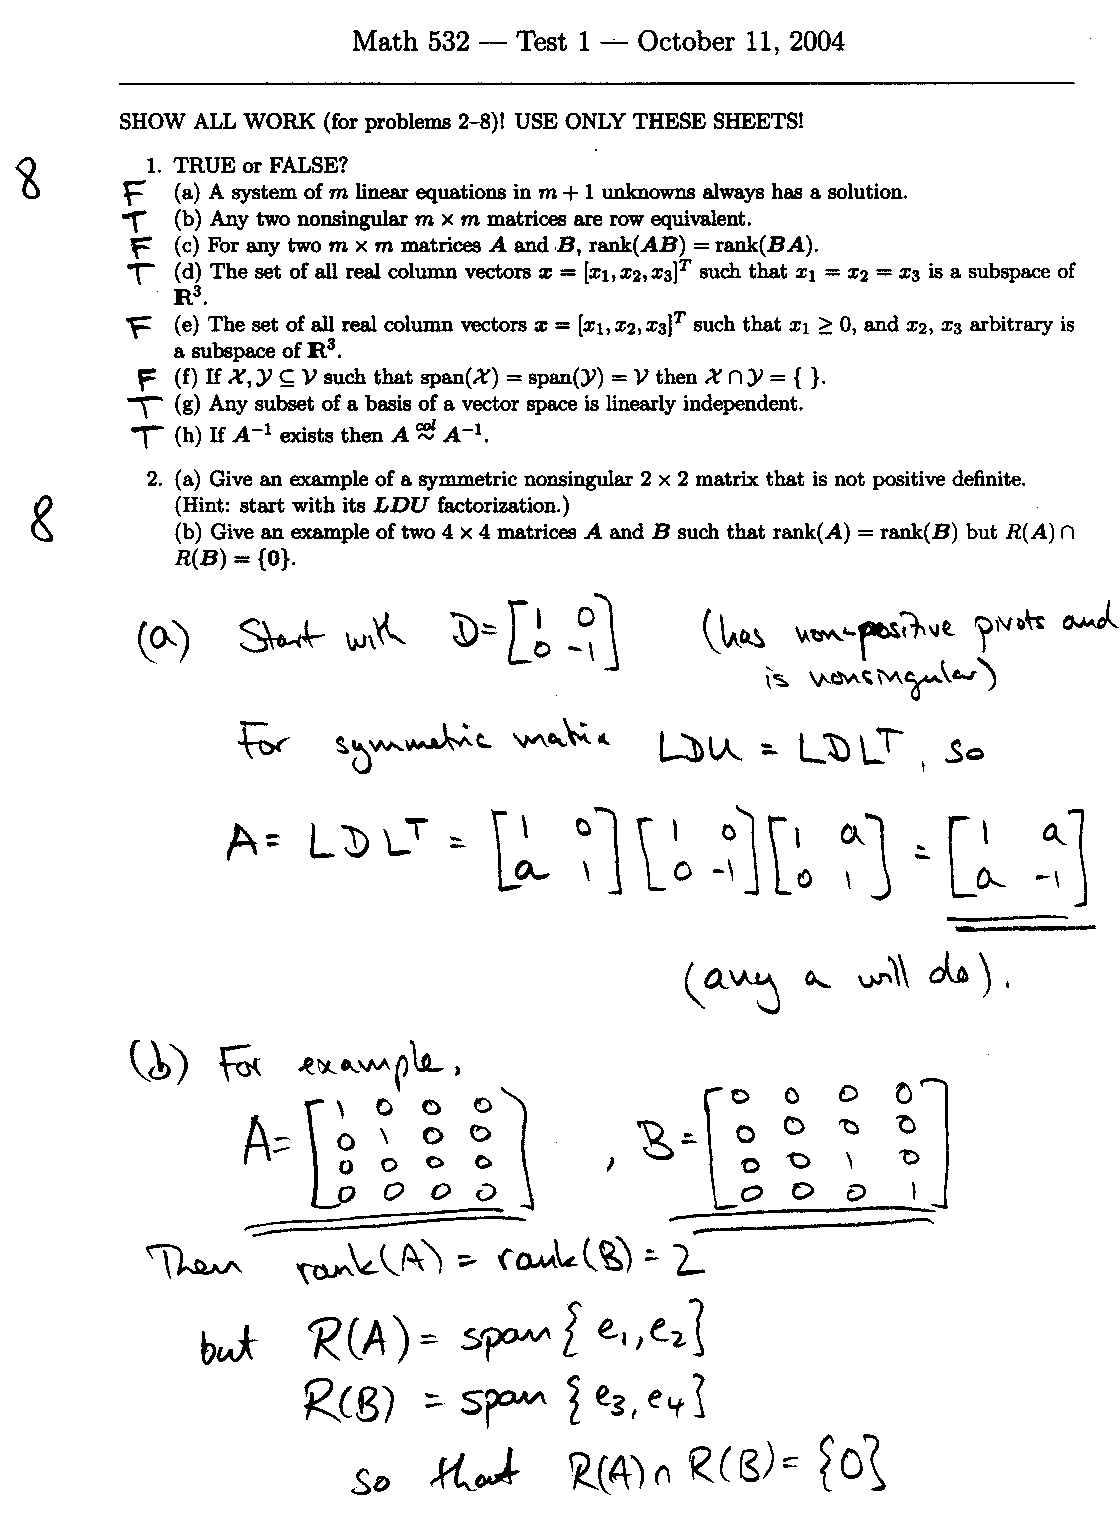 Math 532 — Test 1 — October 11, 2004
SHOW ALL WORK (for problems 2–8)! USE ONLY THESE SHEETS!
8
1. TRUE or FALSE?
F (a) A system of m linear equations in m + 1 unknowns always has a solution.
T (b) Any two nonsingular m × m matrices are row equivalent.
F (c) For any two m × m matrices A and B, rank(AB) = rank(BA).
T (d) The set of all real column vectors x = [x₁, x₂, x₃]ᵀ such that x₁ = x₂ = x₃ is a subspace of
R³.
F (e) The set of all real column vectors x = [x₁, x₂, x₃]ᵀ such that x₁ ≥ 0, and x₂, x₃ arbitrary is
a subspace of R³.
F (f) If 𝒳, 𝒴 ⊆ 𝒱 such that span(𝒳) = span(𝒴) = 𝒱 then 𝒳 ∩ 𝒴 = { }.
T (g) Any subset of a basis of a vector space is linearly independent.
T (h) If A⁻¹ exists then A col≈ A⁻¹.
8
2. (a) Give an example of a symmetric nonsingular 2 × 2 matrix that is not positive definite.
(Hint: start with its LDU factorization.)
(b) Give an example of two 4 × 4 matrices A and B such that rank(A) = rank(B) but R(A) ∩
R(B) = {0}.
(a) Start with D = [1 0; 0 -1] (has non-positive pivots and
is nonsingular)
For symmetric matrix LDU = LDLᵀ, so
A = LDLᵀ = [1 0; a 1] [1 0; 0 -1] [1 a; 0 1] = [1 a; a -1]
(any a will do).
(b) For example,
A = [1 0 0 0; 0 1 0 0; 0 0 0 0; 0 0 0 0], B = [0 0 0 0; 0 0 0 0; 0 0 1 0; 0 0 0 1]
Then rank(A) = rank(B) = 2
but R(A) = span{e₁, e₂}
R(B) = span{e₃, e₄}
so that R(A) ∩ R(B) = {0}